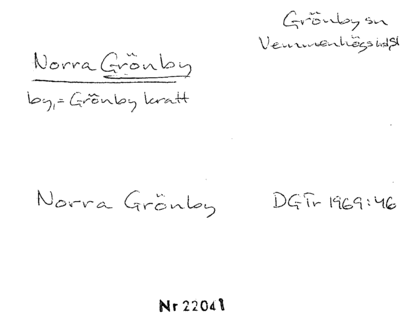 Grönby sn
Vemmenhögs hd, Sk
Norra Grönby
by, = Grönby kratt
Norra Grönby
DGTr 1969:46
Nr 22041